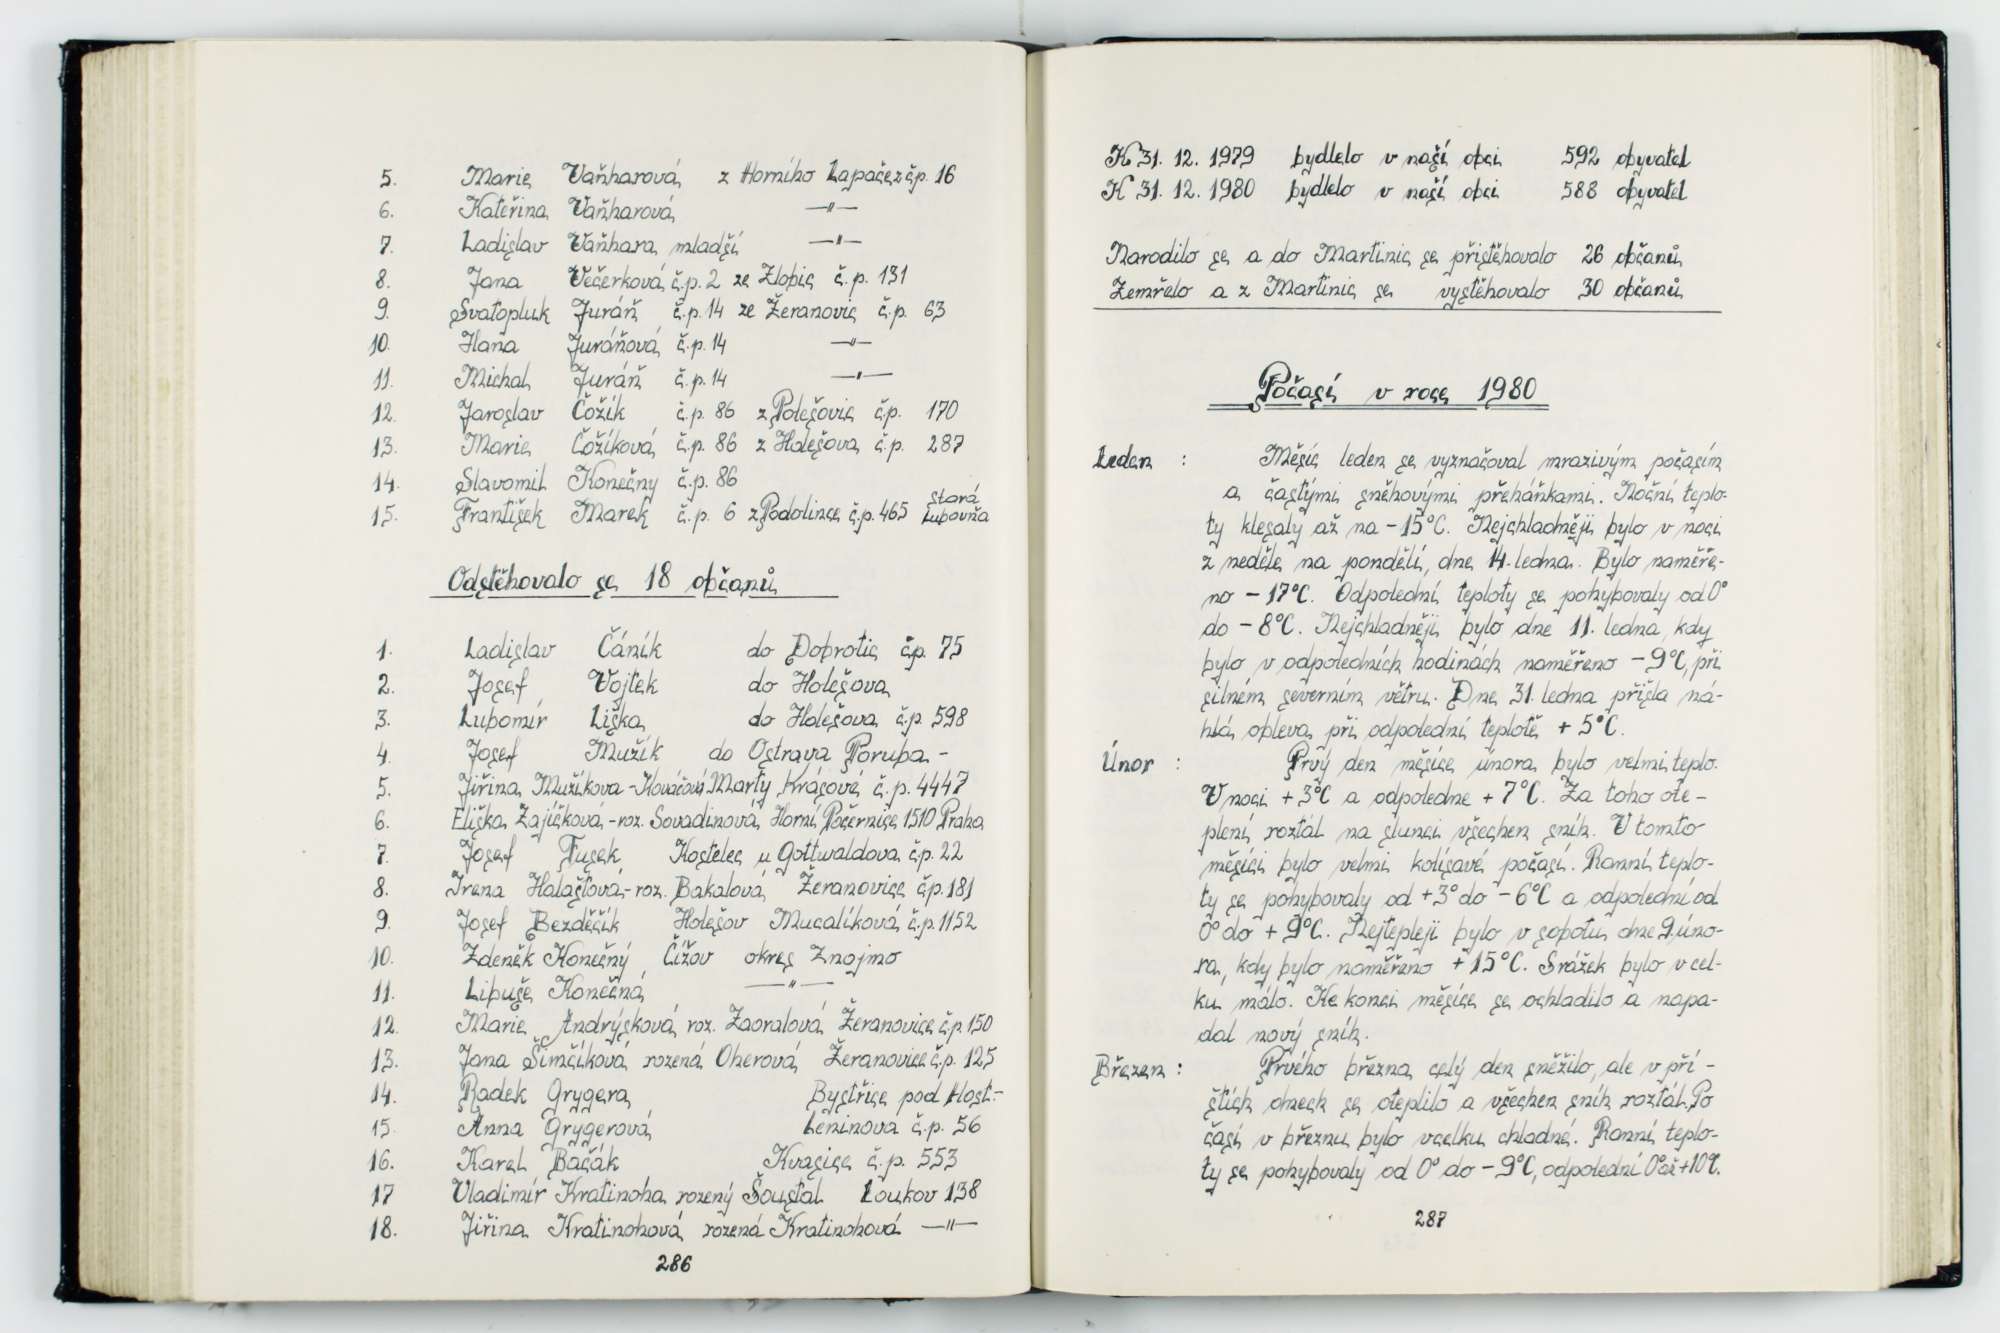 5. Marie Vaňharová z Horního Lapače č.p. 16
6. Kateřina Vaňharová —"—
7. Ladislav Vaňhara mladší —"—
8. Jana Večerková č.p. 2 ze Zlobic č.p. 131
9. Svatopluk Juráň č.p. 14 ze Žeranovic č.p. 63
10. Hana Juráňová č.p. 14 —"—
11. Michal Juráň č.p. 14 —"—
12. Jaroslav Čožík č.p. 86 z Polešovic č.p. 170
13. Marie Čožíková č.p. 86 z Holešova č.p. 287
14. Slavomil Konečny č.p. 86
15. František Marek č.p. 6 z Podolince č.p. 465 Stará Lubovňa
Odstěhovalo se 18 občanů
1. Ladislav Čáník do Dobrotic č.p. 75
2. Josef Vojtek do Holešova
3. Lubomír Liška do Holešova č.p. 598
4. Josef Mužík do Ostrava Poruba -
5. Jiřina Mužíkova - Kováčová Marty Krásové č.p. 4447
6. Eliška Zajíčková - roz. Sovadinová Horní Počernice 1510 Praha
7. Josef Fusek Kostelec u Gottwaldova č.p. 22
8. Irena Halaštová - roz. Bakalová Žeranovice č.p. 181
9. Josef Bezděčík Holešov Mucalíková č.p. 1152
10. Zdeněk Konečný Čížov okres Znojmo
11. Libuše Konečná —"—
12. Marie Andrýsková roz. Zaoralová Žeranovice č.p. 150
13. Jana Šimčíková rozená Oherová Žeranovice č.p. 125
14. Radek Grygera Bystřice pod Host.-
15. Anna Grygerová Leninova č.p. 56
16. Karel Bačák Kvasice č.p. 553
17 Vladimír Kratinoha rozený Šoustal Loukov 138
18. Jiřina Kratinohová rozená Kratinohová —"—
286
K 31. 12. 1979 bydlelo v naší obci 592 obyvatel
K 31. 12. 1980 bydlelo v naší obci 588 obyvatel
Narodilo se a do Martinic se přistěhovalo 26 občanů
Zemřelo a z Martinic se vystěhovalo 30 občanů
Počasí v roce 1980
Leden : Měsíc leden se vyznačoval mrazivým počasím
a častými sněhovými přeháňkami. Noční teplo-
ty klesaly až na -15°C. Nejchladněji bylo v noci
z neděle na pondělí, dne 14. ledna. Bylo naměře-
no -17°C. Odpolední teploty se pohybovaly od 0°
do -8°C. Nejchladněji bylo dne 11. ledna, kdy
bylo v odpoledních hodinách naměřeno -9°C, při
silném severním větru. Dne 31. ledna přišla ná-
hlá obleva při odpolední teplotě +5°C.
Únor : Prvý den měsíce února bylo velmi teplo.
V noci +3°C a odpoledne +7°C. Za toho ote-
plení roztál na slunci všechen sníh. V tomto
měsíci bylo velmi kolísavé počasí. Ranní teplo-
ty se pohybovaly od +3° do -6°C a odpolední od
0° do +9°C. Nejtepleji bylo v sobotu dne 9. úno-
ra, kdy bylo naměřeno +15°C. Srážek bylo v cel-
ku málo. Ke konci měsíce se ochladilo a napa-
dal nový sníh.
Březen : Prvého března celý den sněžilo, ale v pří-
štích dnech se oteplilo a všechen sníh roztál. Po
časí v březnu bylo vcelku chladné. Ranní teplo-
ty se pohybovaly od 0° do -9°C, odpolední 0° až +10°C.
287